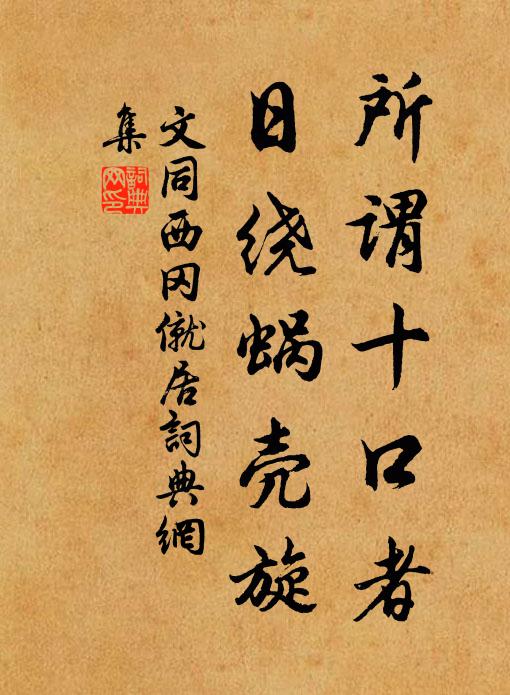 所谓十口者
日绕蜗壳旋
文同西冈僦居詞典網
集
詞典網印